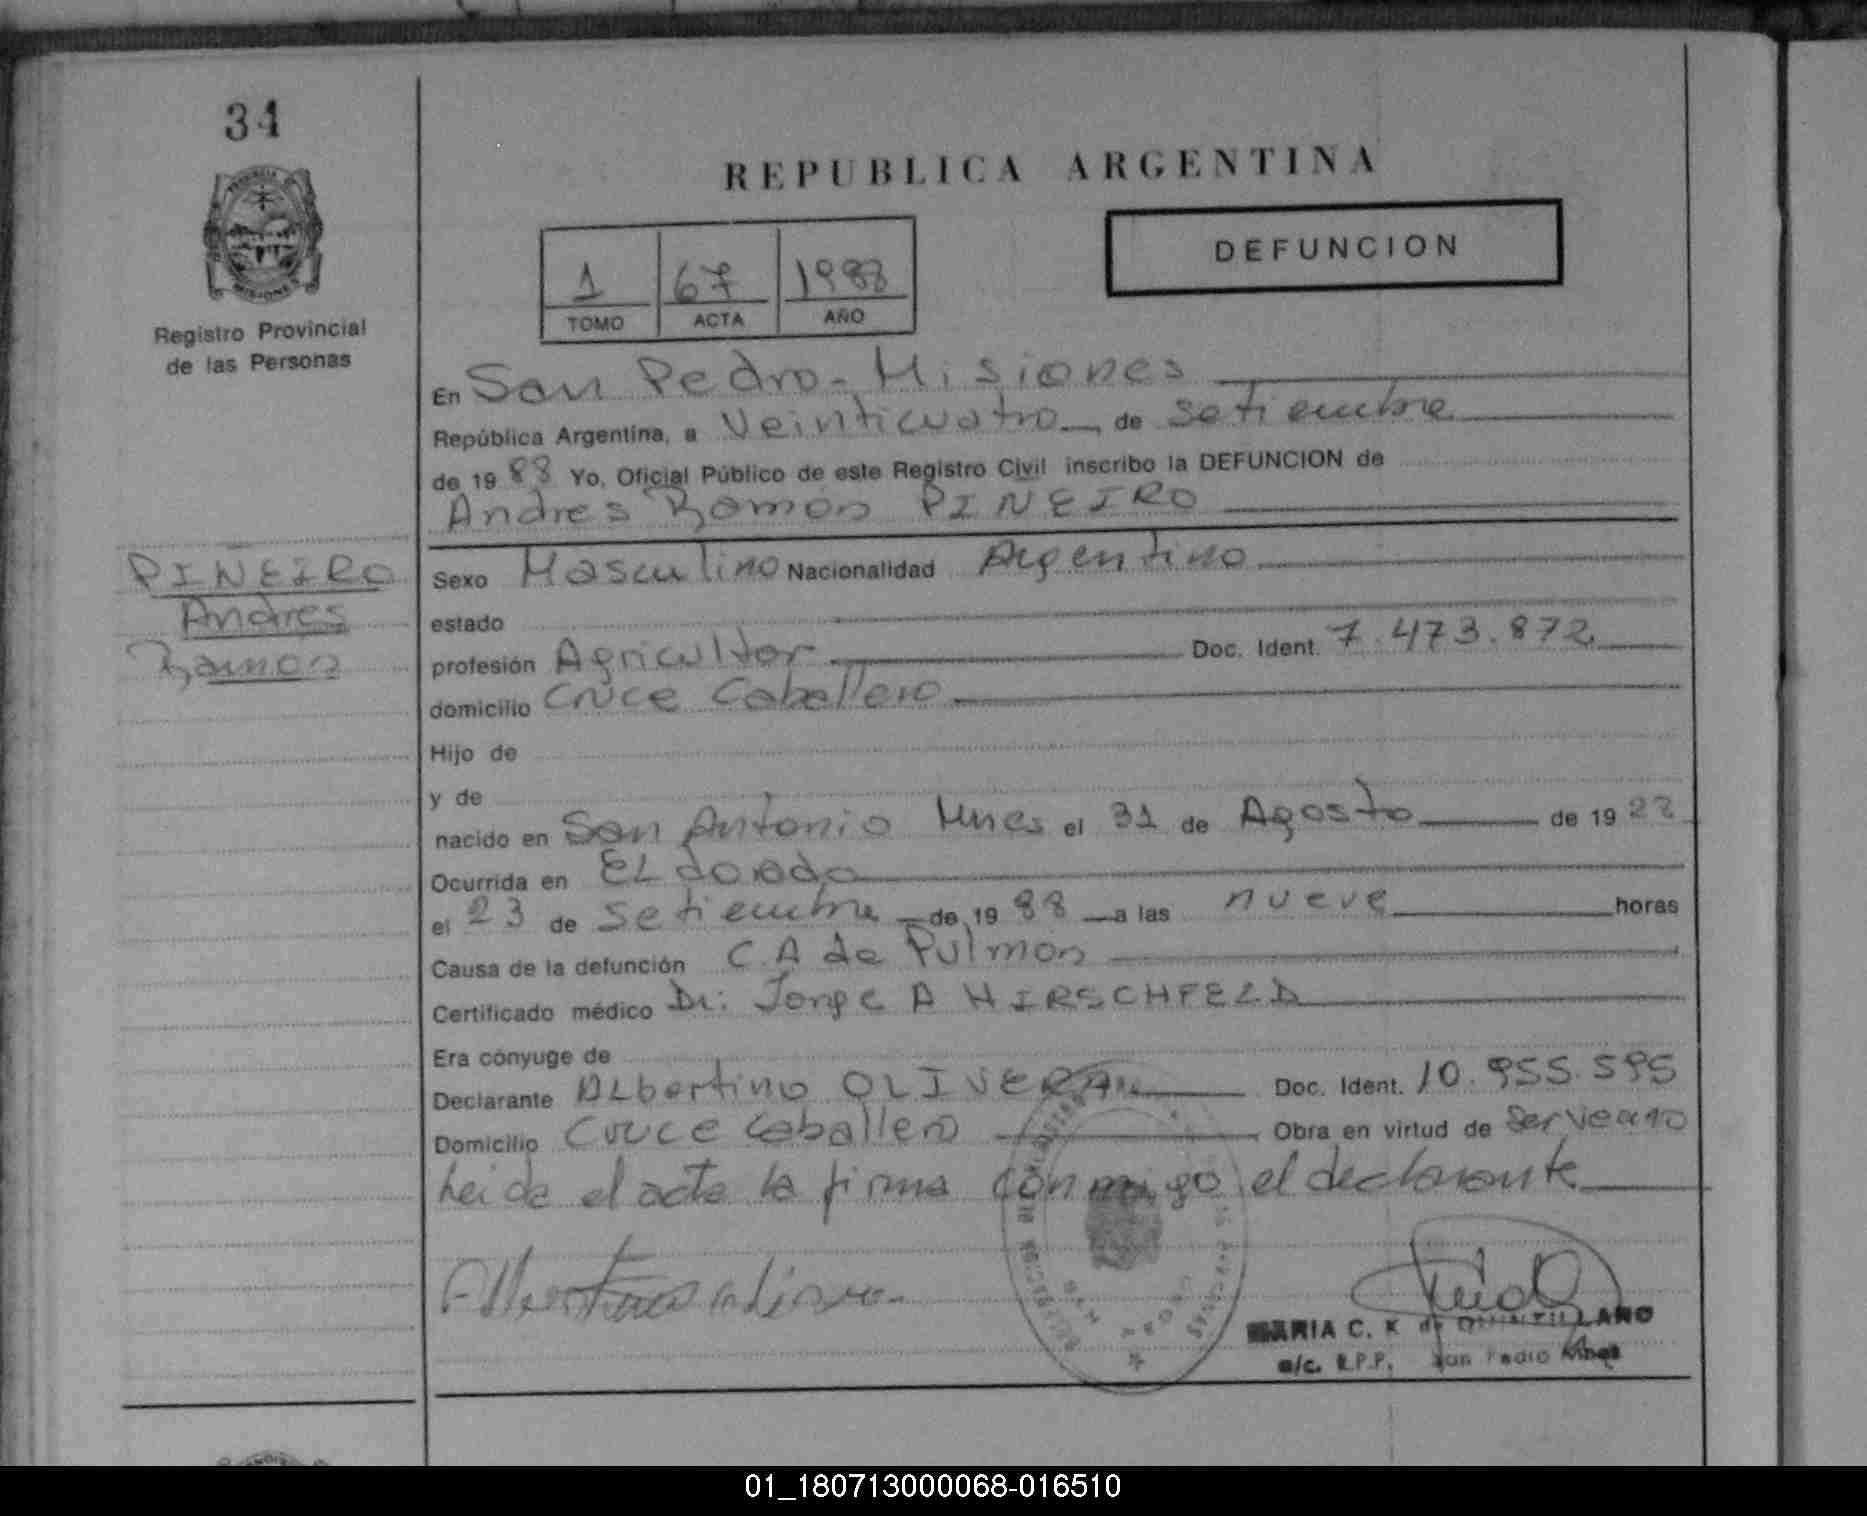 34
Registro Provincial
de las Personas
REPUBLICA ARGENTINA
DEFUNCION
1 67 1988
TOMO ACTA AÑO
En San Pedro - Misiones
República Argentina, a Veinticuatro de setiembre
de 1988 Yo, Oficial Público de este Registro Civil inscribo la DEFUNCION de
Andres Ramon PINEIRO
PINEIRO
Andres
Ramon
Sexo Masculino Nacionalidad Argentino
estado
profesión Agricultor Doc. Ident. 7.473.872
domicilio Cruce Caballero
Hijo de
y de
nacido en San Antonio Mnes el 31 de Agosto de 1922
Ocurrida en ELdorado
el 23 de setiembre de 1988 a las nueve horas
Causa de la defunción C.A de Pulmon
Certificado médico Dr: Jorge A HIRSCHFELD
Era cónyuge de
Declarante ALbertino OLIVERA Doc. Ident. 10.955.595
Domicilio Cruce Caballero Obra en virtud de
Leida el acta la firma conmigo el declarante
MARIA C. K de QUINTILLANO
a/c. R.P.P. San Pedro Mnes
01_180713000068-016510